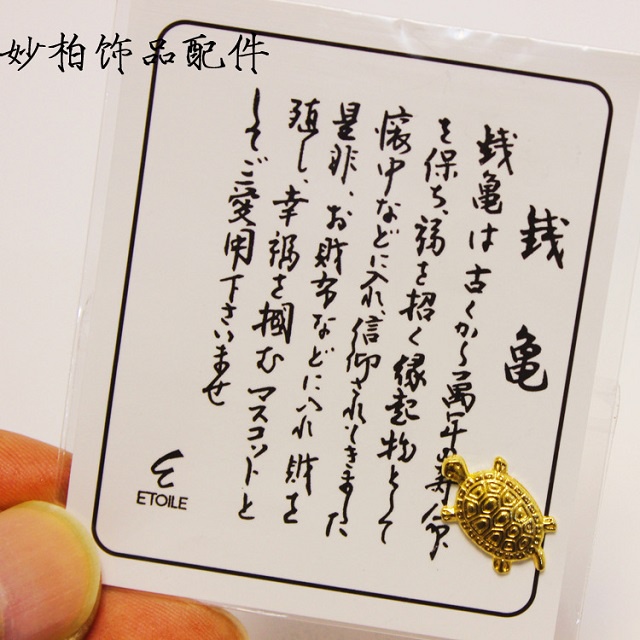 妙柏饰品配件
銭亀
銭亀は古くから萬年の寿命
を保ち、福を招く縁起物として
懐中などに入れ、信仰されてきました
是非、お財布などに入れ財を
殖し、幸福を掴むマスコットと
してご愛用下さいませ
ETOILE